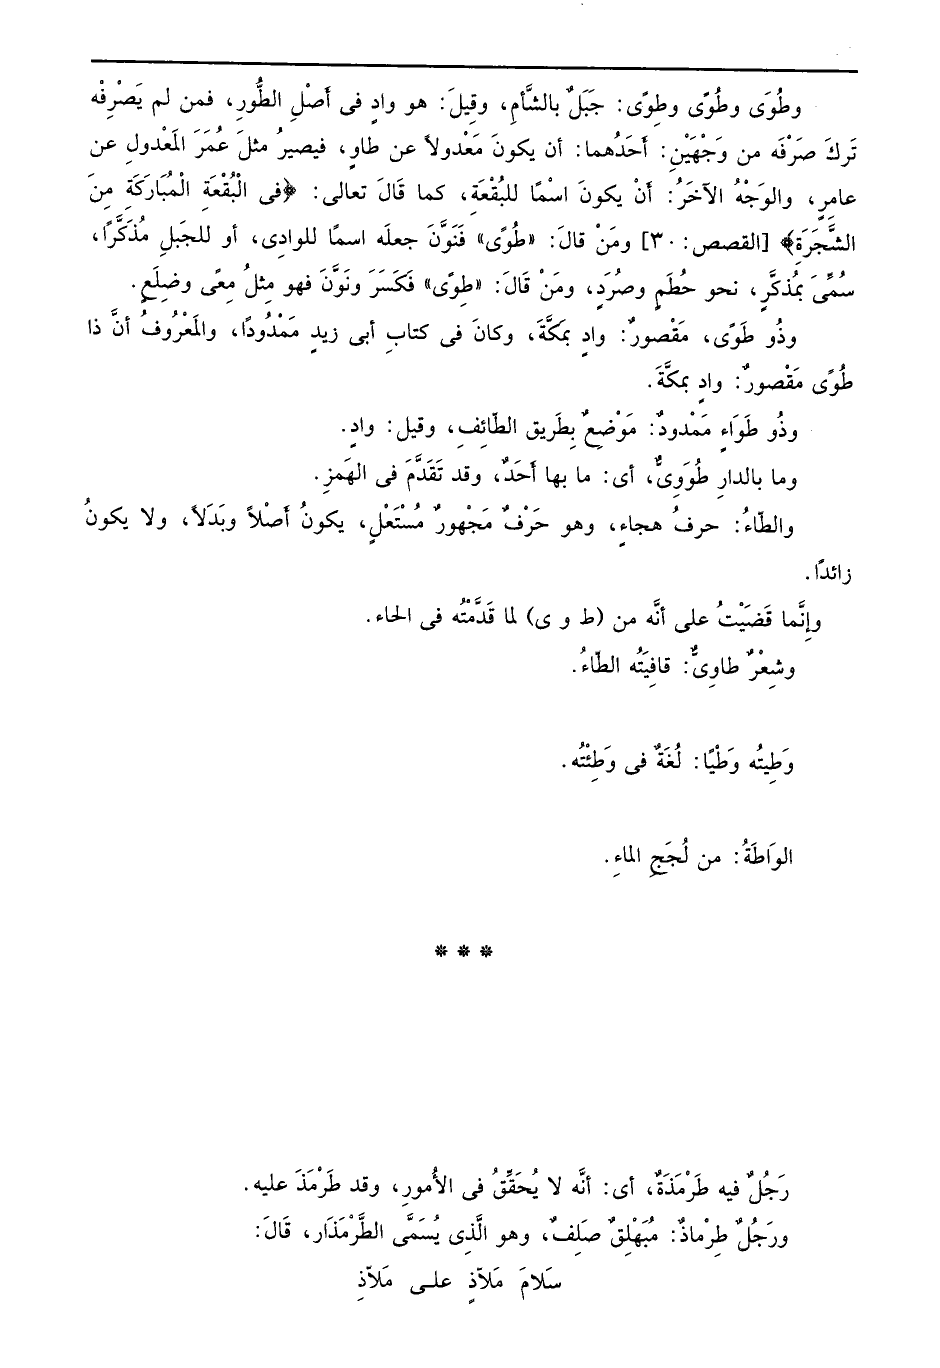 وطُوَى وطُوًى وطِوًى: جَبَلٌ بالشَّأمِ، وقِيلَ: هو وادٍ فى أَصْلِ الطُّورِ، فمن لم يَصْرِفْه
تَركَ صَرْفَه من وَجْهَيْنِ: أَحَدُهما: أن يكونَ مَعْدولاً عن طاوٍ، فيصيرُ مثلَ عُمَرَ المَعْدولِ عن
عامرٍ، والوَجْهُ الآخَرُ: أَنْ يكونَ اسْمًا للبُقْعَةِ، كما قَالَ تعالى: ﴿فى الْبُقْعَةِ الْمُبَارَكَةِ مِنَ
الشَّجَرَةِ﴾ [القصص: ٣٠] ومَنْ قالَ: «طُوًى» فَنَوَّنَ جعلَه اسمًا للوادِى، أو للجَبلِ مُذَكَّرًا،
سُمِّىَ بمُذكَّرٍ، نحو حُطَمٍ وصُرَدٍ، ومَنْ قَالَ: «طِوًى» فَكَسَرَ ونَوَّنَ فهو مِثلُ مِعًى وضِلَعٍ.
وذُو طَوًى، مَقْصورٌ: وادٍ بمَكَّةَ، وكانَ فى كتابِ أبى زيدٍ مَمْدُودًا، والمَعْرُوفُ أنَّ ذا
طُوًى مَقْصورٌ: وادٍ بمكَّةَ.
وذُو طَوَاءٍ مَمْدودٌ: مَوْضِعٌ بِطَريق الطّائِفِ، وقيل: وادٍ.
وما بالدارِ طُوَوِىٌّ، أى: ما بها أَحَدٌ، وقد تَقَدَّمَ فى الهَمزِ.
والطّاءُ: حرفُ هجاءٍ، وهو حَرْفٌ مَجْهورٌ مُسْتَعْلٍ، يكونُ أَصْلاً وبَدَلاً، ولا يكونُ
زائدًا.
وإِنَّما قَضَيْتُ على أنَّه من (ط و ى) لما قَدَّمْتُه فى الحاء.
وشِعْرٌ طاوِىٌّ: قافِيَتُه الطّاءُ.
وَطِيتُه وَطْيًا: لُغَةٌ فى وَطِئْتُه.
الوَاطَةُ: من لُجَجِ الماءِ.
* * *
رَجُلٌ فيه طَرْمَذَةٌ، أى: أنَّه لا يُحَقِّقُ فى الأُمورِ، وقد طَرْمَذَ عليه.
ورَجُلٌ طِرْماذٌ: مُبَهْلِقٌ صَلِفٌ، وهو الَّذِى يُسَمَّى الطَّرْمَذَار، قَالَ:
سَلامَ مَلاّذٍ علـى مَلاّذِ